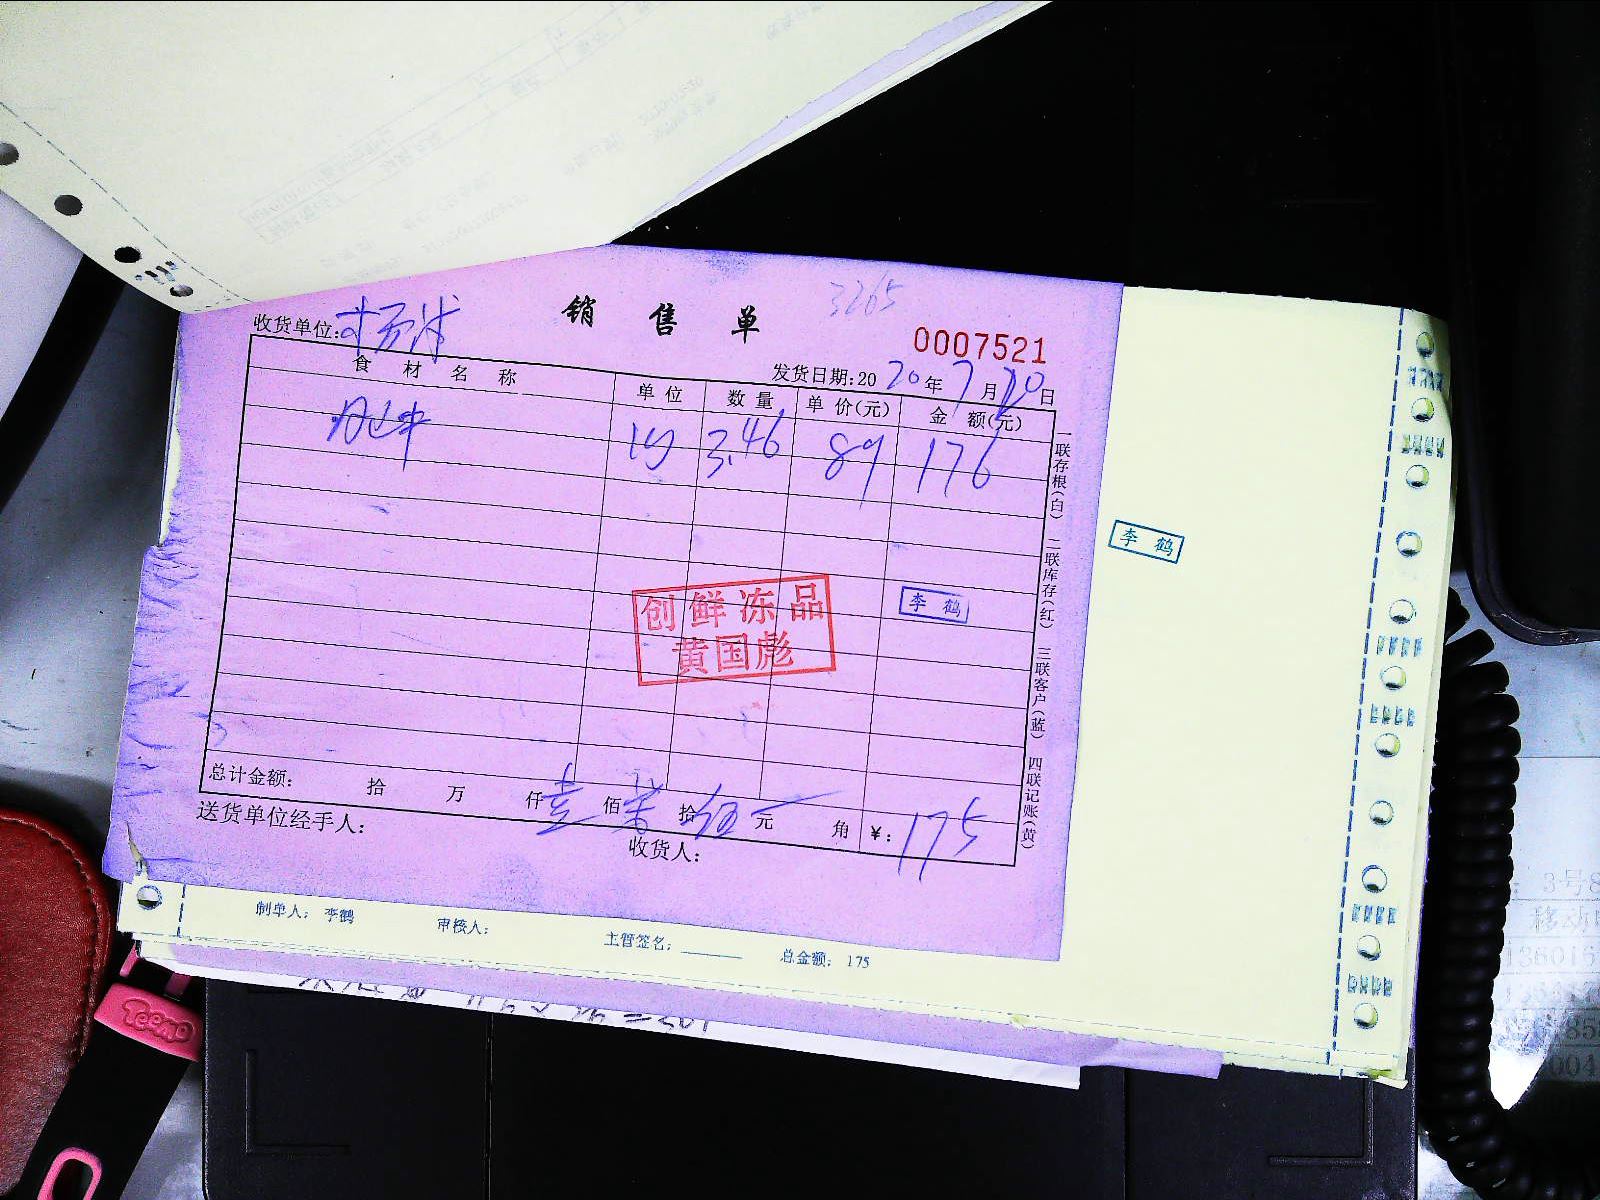 销售单
3265
收货单位:
0007521
发货日期:2020年7月10日
食材名称 单位 数量 单价(元) 金额(元)
3.46 89 176
一联存根(白) 二联库存(红) 三联客户(蓝) 四联记账(黄)
李鹤
李鹤
创鲜冻品
黄国彪
总计金额: 拾 万 仟壹佰柒拾伍元 角 ¥:175
送货单位经手人: 收货人:
制单人: 李鹤 审核人: 主管签名: 总金额: 175
Teemo
3号8
移动